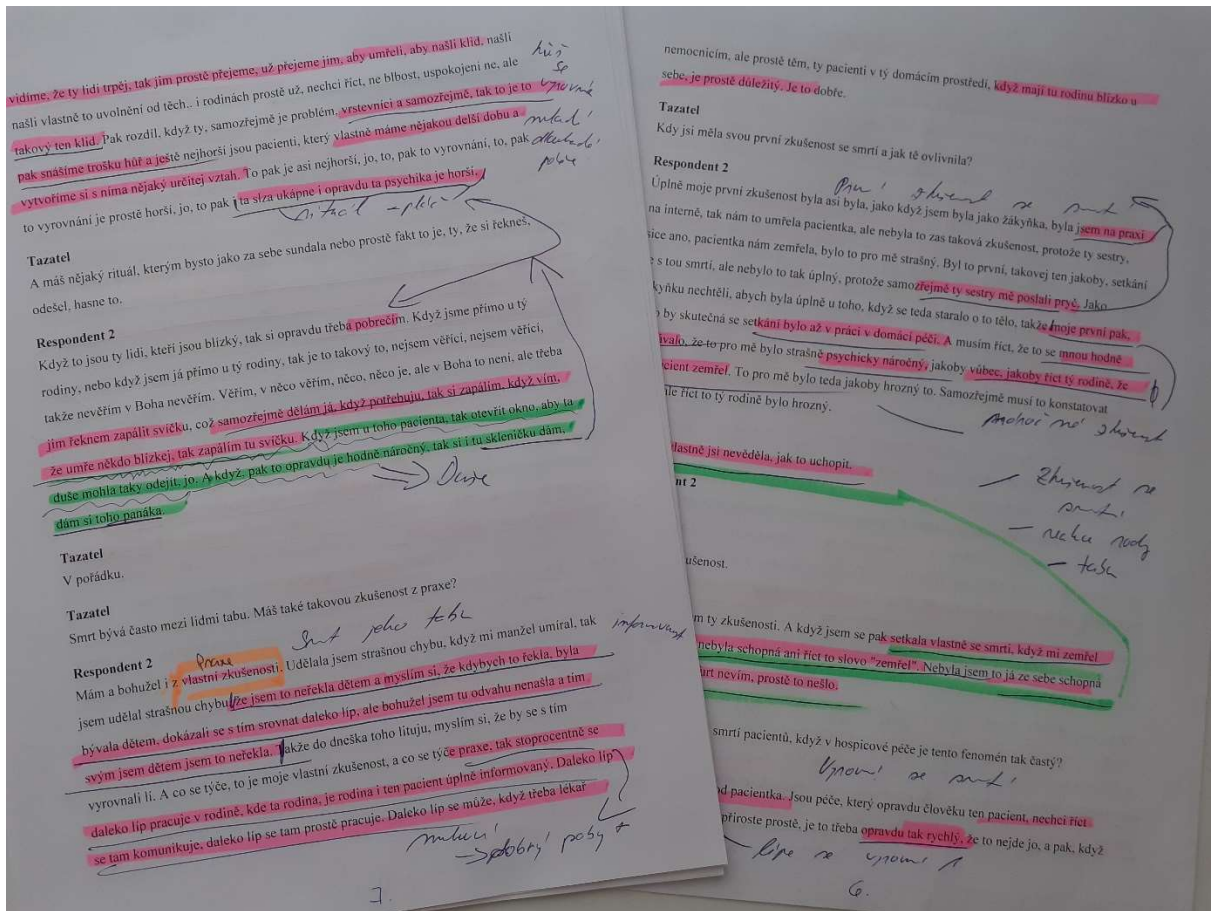 vidíme, že ty lidi trpěj, tak jim prostě přejeme, už přejeme jim, aby umřeli, aby našli klid, našli
našli vlastně to uvolnění od těch.. i rodinách prostě už, nechci říct, ne blbost, uspokojení ne, ale
takový ten klid. Pak rozdíl, když ty, samozřejmě je problém, vrstevníci a samozřejmě, tak to je to
pak snášíme trošku hůř a ještě nejhorší jsou pacienti, který vlastně máme nějakou delší dobu a
vytvoříme si s nima nějaký určitej vztah. To pak je asi nejhorší, jo, to, pak to vyrovnání, to, pak
to vyrovnání je prostě horší, jo, to pak i ta slza ukápne i opravdu ta psychika je horší.
hůř
se
mladí
rituál - pláč
Tazatel
A máš nějaký rituál, kterým bysto jako za sebe sundala nebo prostě fakt to je, ty, že si řekneš,
odešel, hasne to.
Respondent 2
Když to jsou ty lidi, kteří jsou blízký, tak si opravdu třeba pobrečím. Když jsme přímo u tý
rodiny, nebo když jsem já přímo u tý rodiny, tak je to takový to, nejsem věřící, nejsem věřící,
takže nevěřím v Boha nevěřím. Věřím, v něco věřím, něco, něco je, ale v Boha to není, ale třeba
jim řeknem zapálit svíčku, což samozřejmě dělám já, když potřebuju, tak si zapálím, když vím,
že umře někdo blízkej, tak zapálím tu svíčku. Když jsem u toho pacienta, tak otevřít okno, aby ta
duše mohla taky odejít, jo. A když, pak to opravdu je hodně náročný, tak si i tu skleničku dám,
dám si toho panáka.
Duše
Tazatel
V pořádku.
Tazatel
Smrt bývá často mezi lidmi tabu. Máš také takovou zkušenost z praxe?
Smrt jako tabu
Praxe
Respondent 2
Mám a bohužel i z vlastní zkušenosti. Udělala jsem strašnou chybu, když mi manžel umíral, tak
jsem udělal strašnou chybu, že jsem to neřekla dětem a myslím si, že kdybych to řekla, byla
bývala dětem, dokázali se s tím srovnat daleko líp, ale bohužel jsem tu odvahu nenašla a tím
svým jsem dětem jsem to neřekla. Takže do dneška toho lituju, myslím si, že by se s tím
vyrovnali li. A co se týče, to je moje vlastní zkušenost, a co se týče praxe, tak stoprocentně se
daleko líp pracuje v rodině, kde ta rodina, je rodina i ten pacient úplně informovaný. Daleko líp
se tam komunikuje, daleko líp se tam prostě pracuje. Daleko líp se může, když třeba lékař
informovanost
mluvení
7.
nemocnicím, ale prostě těm, ty pacienti v tý domácím prostředí, když mají tu rodinu blízko u
sebe, je prostě důležitý. Je to dobře.
Tazatel
Kdy jsi měla svou první zkušenost se smrtí a jak tě ovlivnila?
První zkušenost se smrtí
Respondent 2
Úplně moje první zkušenost byla asi byla, jako když jsem byla jako žákyňka, byla jsem na praxi
na interně, tak nám to umřela pacientka, ale nebyla to zas taková zkušenost, protože ty sestry,
sice ano, pacientka nám zemřela, bylo to pro mě strašný. Byl to první, takovej ten jakoby, setkání
s tou smrtí, ale nebylo to tak úplný, protože samozřejmě ty sestry mě poslali pryč. Jako
nechtěli, abych byla úplně u toho, když se teda staralo o to tělo, takže moje první pak,
by skutečná se setkání bylo až v práci v domácí péči. A musím říct, že to se mnou hodně
že to pro mě bylo strašně psychicky náročný, jakoby vůbec, jakoby říct tý rodině, že
zemřel. To pro mě bylo teda jakoby hrozný to. Samozřejmě musí to konstatovat
ale říct to tý rodině bylo hrozný.
vlastně jsi nevěděla, jak to uchopit.
Zkušenost se
smrtí
- tabu
ty zkušenosti. A když jsem se pak setkala vlastně se smrtí, když mi zemřel
nebyla schopná ani říct to slovo "zemřel". Nebyla jsem to já ze sebe schopná
nevím, prostě to nešlo.
smrtí pacientů, když v hospicové péče je tento fenomén tak častý?
pacientka. Jsou péče, který opravdu člověku ten pacient, nechci říct
přiroste prostě, je to třeba opravdu tak rychlý, že to nejde jo, a pak, když
6.